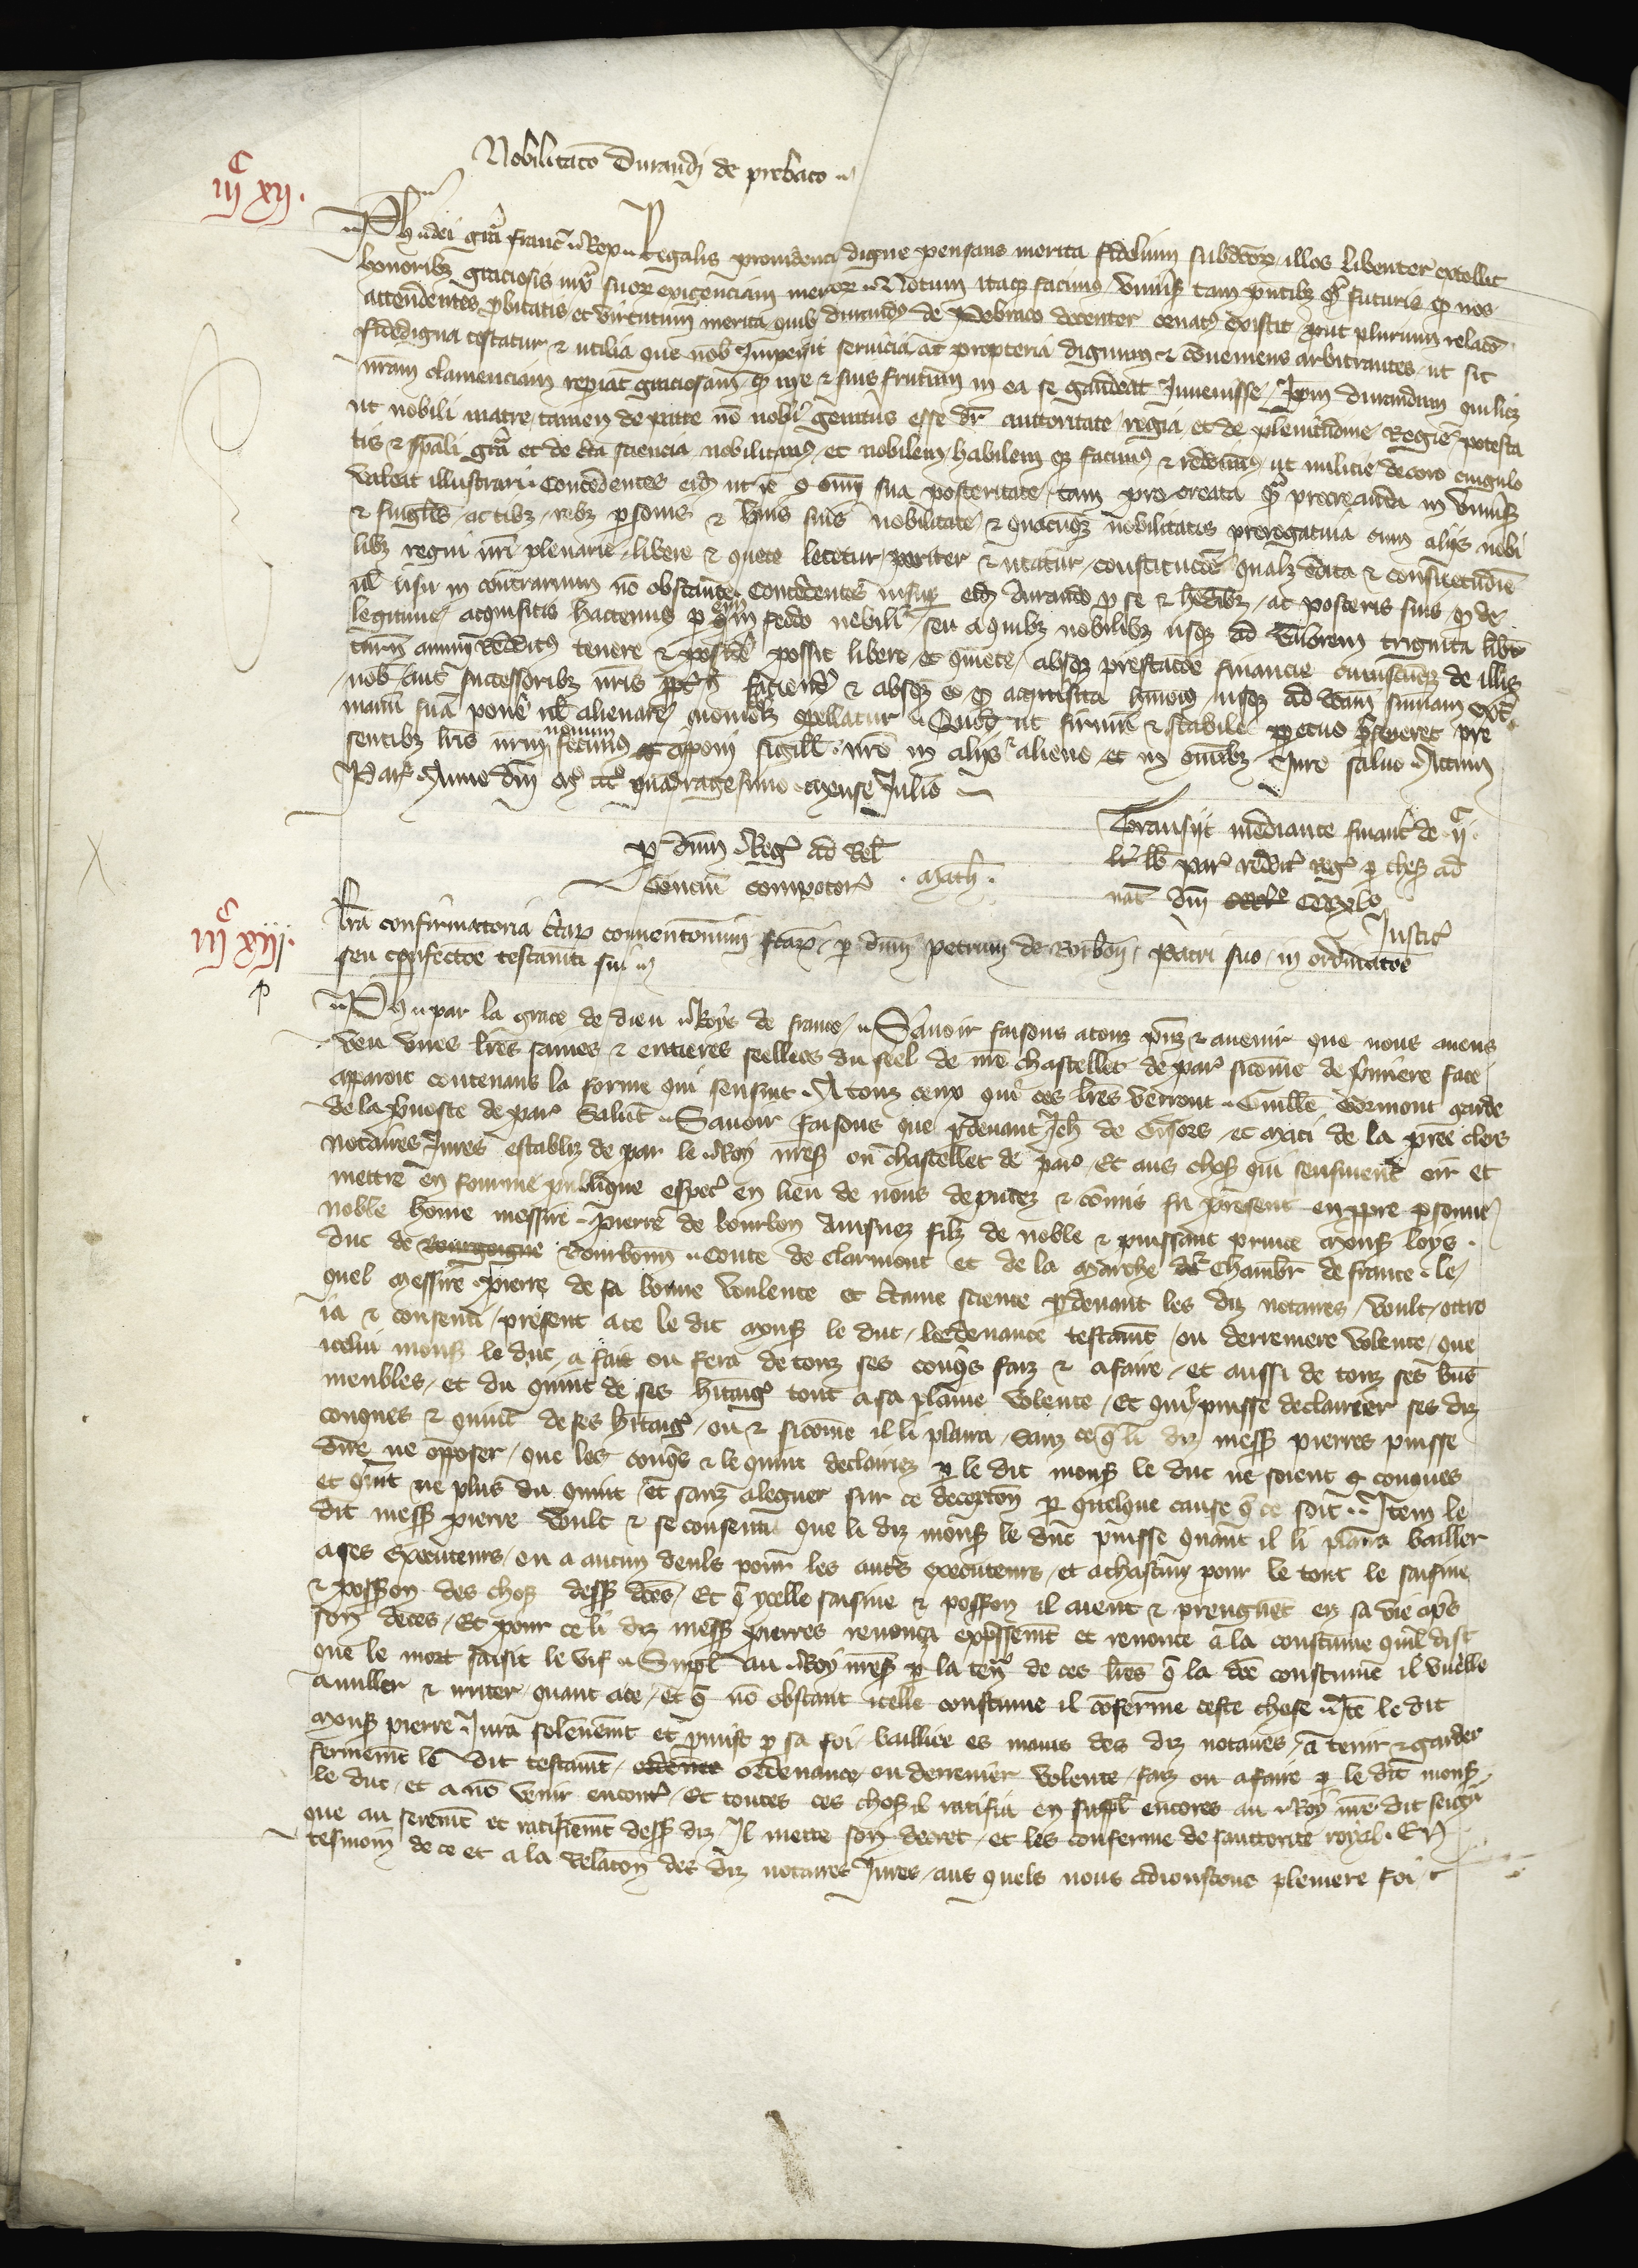 Nobilitaco Durandi de prebaco
iijc xij.
Ph dei gra franc Rex Regalis prouidencia digne pensans merita fidelium subdictor illos libenter extollit
honoribz graciosis iuxta suor exigenciam meritor Notum itaqz facimus vniuersis tam presentibz qm futuris qd nos
attendentes probitatis et virtutum merita quib durandus de Pebraco decenter ornatus existit prout plurium relacio
fidedigna testatur & utilia que nob impendit seruicia ac propterea dignum & conueniens arbitrantes ut sic
nram clemenciam repiat graciosam qd inde & suis fructum in ea se gaudeat Inuenisse Ipm durandum qui licet
ut nobili matre tamen de patre no nobili genitus esse dr auctoritate regia et de plenitudine Regie potesta
tis & spali gra et de certa sciencia nobilitamus et nobilem habilem qz facimus & reddimus ut milicie decoro cingulo
valeat illustrari Concedentes eidem ut ipe cum omni sua posteritate tam procreata qm procreanda in vniuersis
& singulis actibz rebz personis & bonis suis nobilitate & quacunqz nobilitatis prerogatiua cum alijs nobi
libz regni nri plenarie libere & quete letetur pariter & utatur constitucione qualibet edita & consuetudine
uel usu in contrarium no obstante Concedentes insuper eidem durando pro se & hedibz ac posteris suis qd de
legitime acquisitis hactenus per eum in feodo nobili seu a quibz nobilibz usqz ad valorem triginta libr
turn annui redditus tenere & possidere possit libere et quiete absqz prestacione financie cuiuscunqz de illis
nob aut successoribz nris faciende & absqz eo qd acquisita huiusmodi usqz ad dictam summam extra
manum suam ponere uel alienare quomodolibet compellatur Quod ut firmum & stabile perpetuo perseueret pre
sentibz lris nrum nouum fecimus apponi sigill nro in alijs & alieno et in omnibz Iure saluo Actum
Par Anno dni mo ccco quadragesimo mense Julio
per dnm Regem ad Rel
Consilii compotorum . Math .
Transijt mediante financ de ijc
l lb par reddit regi per thes ad
nat dni cccxl
Justic
iijc xiij.
Lra confirmatoria certar conuentionum factar per dnm petrum de Borbon patri suo in ordinatoe
seu confectoe testamti sui
Ph par la grace de dieu Roys de france Sauoir faisons a touz presenz & auenir que nous auens
veu vnes lres saines & entieres seellees du seel de nre chastellet de par sicomme de premiere face
apparoit contenans la forme qui sensuit A touz ceux qui ces lres verront Guille Gormont garde
de la preuoste de par Salut Sauoir faisons que pardeuant Jeh de Gisors et Maci de la pree clers
notaires Jures establiz de par le Roy nres ou chastellet de par Et aus choses qui sensuiuent oir et
mettre en fourme publique espec en lieu de nous deputez & commis fu present en propre personne
noble home messire Pierre de bourbon ainsnez filz de noble & puissant prince mons loys
duc de bourgoigne bourbonn conte de clarmont et de la marche & Chambr de france le
quel messire pierre de sa bonne voulente et certaine science pardeuant les diz notaires voult ottro
ia & consenti present a ce le dit mons le duc lordenance testamt ou derreniere volente que
icelui mons le duc a fait ou fera de touz ses conques faiz & a faire et aussi de touz ses biens
meubles et du quint de ses hitaiges tout a sa plaine volente Et quil puisse declairier ses diz
conques & quint de ses hitaiges ou & sicomme il li plaira sanz ce que li diz mess pierres puisse
dire ne opposer que les conques & le quint declairiez par le dit mons le duc ne soient conques
et quint ne plus du quint et sanz aleguer sur ce decepcon par quelque cause que ce soit Item le
dit mess pierre voult & se consenti que li diz mons le duc puisse quant il li plaira bailler
a ses executeurs ou a aucun deuls pour les autres executeurs et a chascun pour le tout le saisine
& possession des choses dess dces Et que ycelle saisine & possession il aient & prengnent en sa vie apres
son deces Et pour ce li diz mess pierres renonca expressemt et renonce a la coustume quil dist
que le mort saisit le vif Suppl au Roy nres par la teneur de ces lres que la dce coustume il vueille
anuller & irriter quant a ce Et que no obstant icelle coustume il conferme ceste chose Ite le dit
mons pierre Jura solennemt et promist par sa foi bailliee es mains des diz notaires a tenir & garder
fermemt le dit testamt ordenance ou derreniere volente faiz ou a faire par le dit mons
le duc et a no venir encontre Et toutes ces choses il ratifia en suppl encores au Roy nre dit seigneur
que au seremt et ratifiemt dess diz Il mette son decret et les conferme de sauctorite royal En
tesmoin de ce et a la Relacon des diz notaires Jures aus quels nous adioustons pleniere foi